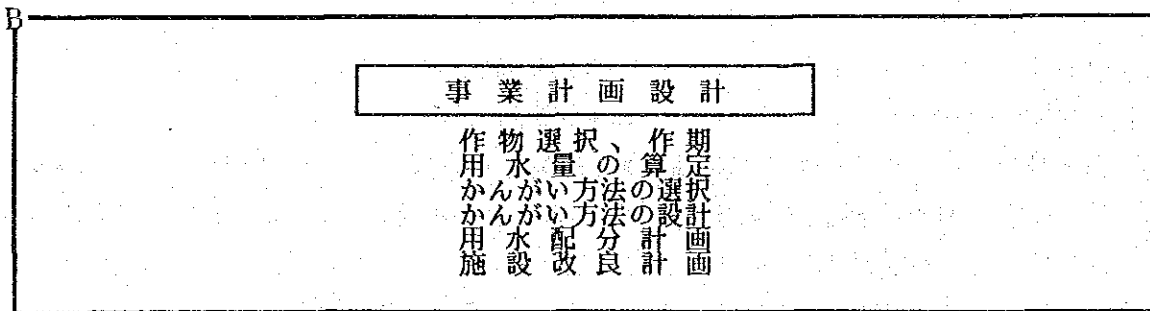 B
事業計画設計
作物選択、作期
用水量の算定
かんがい方法の選択
かんがい方法の設計
用水配分計画
施設改良計画